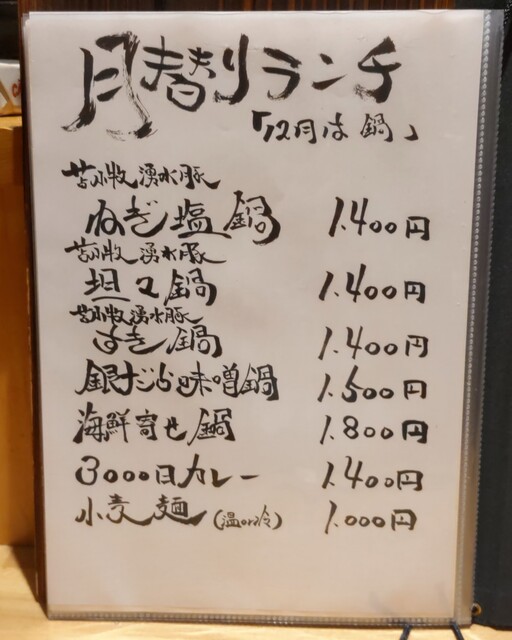 月替りランチ
「12月は鍋」
苫小牧湧水豚
ねぎ塩鍋 1.400円
苫小牧湧水豚
坦々鍋 1.400円
苫小牧湧水豚
はき鍋 1.400円
銀だら味噌鍋 1.500円
海鮮寄せ鍋 1.800円
3000日カレー 1.400円
小麦麺(温or冷) 1.000円